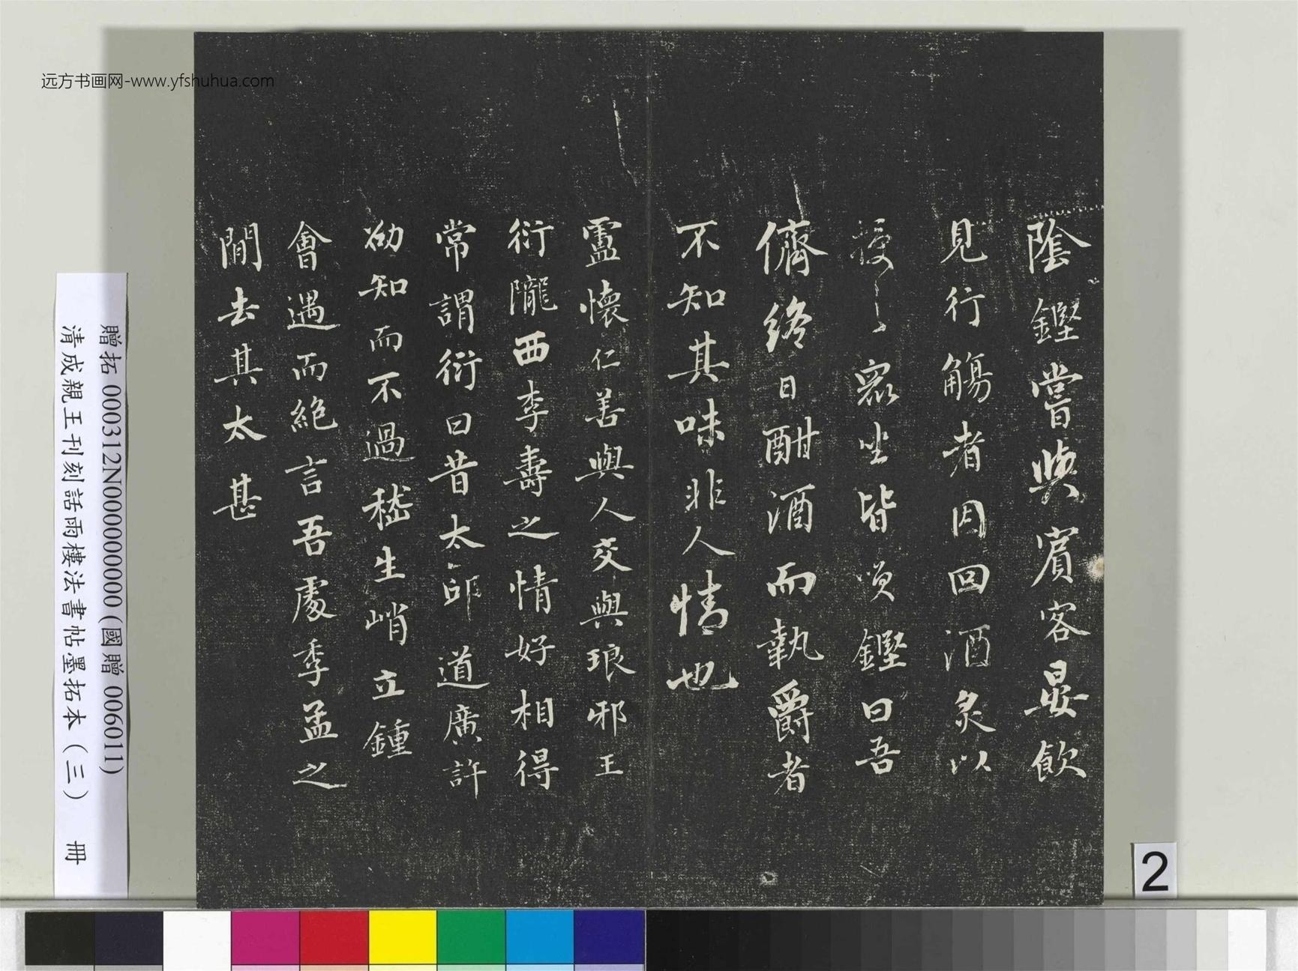 陰鏗嘗與賓客晏飲
見行觴者因回酒炙以
授之眾坐皆笑鏗曰吾
儕終日酣酒而執爵者
不知其味非人情也
盧懷仁善與人交與琅邪王
衍隴西李壽之情好相得
常謂衍曰昔太邱道廣許
劭知而不過嵇生峭立鍾
會遇而絕言吾處季孟之
間去其太甚
远方书画网-www.yfshuhua.com
贈拓 000312N000000000 (國贈 006011)
清成親王刊刻話雨樓法書帖墨拓本(三) 冊
2